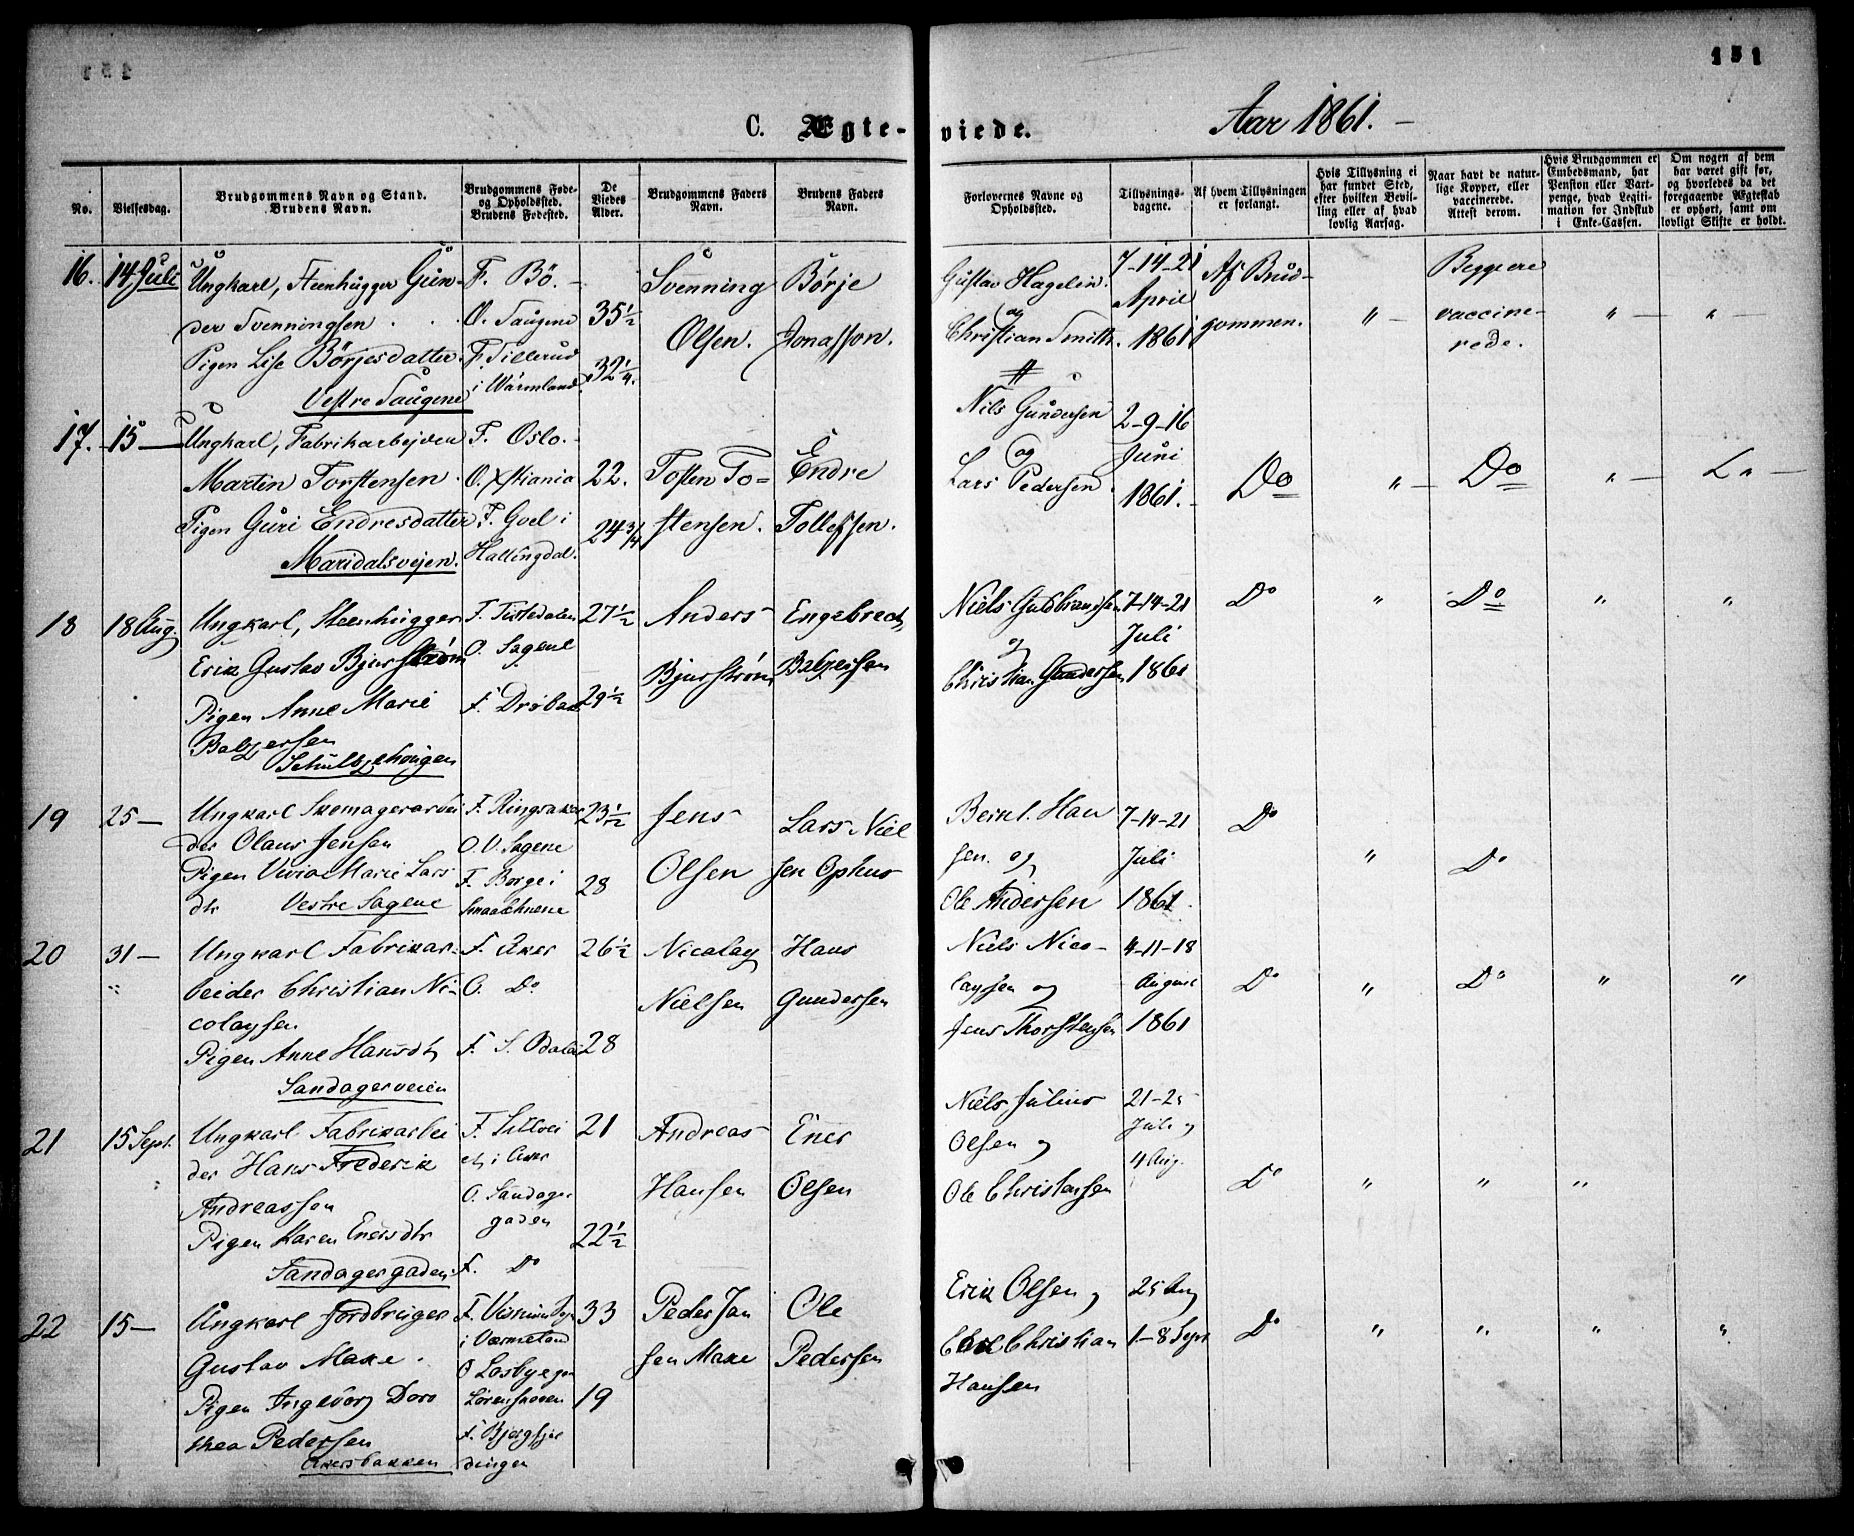 151
C. Ægteviede. Aar 1861.
No.
Vielsesdag.
Brudgommens Navn og Stand.
Brudens Navn.
Brudgommens Føde-
og Opholdssted.
Brudens Fødested.
De
Viedes
Alder.
Brudgommens Faders
Navn.
Brudens Faders
Navn.
Forlovernes Navne og
Opholdssted.
Tillysnings-
dagene.
Af hvem Tillysningen
er forlangt.
Hvis Tillysning ei
har fundet Sted,
efter hvilken Bevil-
ling eller af hvad
lovlig Aarsag.
Naar havt de natur-
lige Kopper, eller
vaccinerede.
Attest derom.
Hvis Brudgommen er
Embedsmand, har
Pension eller Vart-
penge, hvad Legiti-
mation for Indskud
i Enke-Cassen.
Om nogen af dem
har været gift før,
og hvorledes da det
foregaaende Ægteskab
er ophørt, samt om
lovligt Skifte er holdt.
16. 14 Juli
Ungkarl, Steenhugger Gun-
der Svenningsen
Pigen Lise Börjesdatter
Vestre Saugene
F. Bö.
O. Saugene
F. Tillerud
i Wärmland
35½
32¼
Svenning
Olsen.
Börje
Jonasson.
Gustav Hagelin
og
Christian Smith
7-14-21
April
1861
Af Brud-
gommen.
" -
Begge ere
vaccine-
rede.
" -
" -
17. 15 -
Ungkarl, Fabrikarbejder
Martin Torstensen
Pigen Guri Endresdatter
Maridalsvejen.
F. Oslo.
O. Xstiania
F. Goel i
Hallingdal.
22.
24 3/4
Tosten To=
stensen.
Endre
Tollefsen.
Nils Gundersen
og
Lars Pedersen
2-9-16
Juni
1861.
Do
" -
Do
" -
" -
18 18 Aug.
Ungkarl, Steenhugger
Erik Gustav Bjurström
Pigen Anne Marie
Balzersen
Schultzehougen
F. Tistedalen
O. Sagene
F. Drøbak
27½
29½
Anders
Bjurstrøm
Engebrech,
Balzersen
Niels Guldbrandsen
og
Christian Gundersen
7-14-21
Juli
1861
Do
"
Do
"
"
19 25 -
Ungkarl Skomagerarbei
der Olaus Jensen
Pigen Vivia Marie Lars
dtr Vestre Sagene
F. Ringsaker
O. V. Sagene
F. Borge i
Smaalenene
23½
28
Jens
Olsen
Lars Niel
sen Ophus
Bernt Han
sen og
Ole Andersen
7-14-21
Juli
1861.
Do
"
Do
20 31 -
Ungkarl Fabrikar-
beider Christian Ni-
colaysen
Pigen Anne Hansdtr
Sandagerveien
F. Aker
O. Do
F. S. Odalen
26½
28
Nicolay
Nielsen
Hans
Gundersen
Niels Nico-
laysen og
Jens Thorstensen
4-11-18
August
1861
Do
"
Do
"
"
21 15 Sept.
Ungkarl Fabrikarbei
der Hans Frederik
Andreassen
Pigen Karen Enersdtr
Sandagergaden
i Aker
O. Sandager
gaden
F. Do
21
22½
Andreas
Hansen
Ener
Olsen
Niels Julius
Olsen og
Ole Christensen
21-25
Juli og
4 Aug.
Do
"
"
"
22 15 -
Ungkarl Jordbruger
Gustav Make.
Pigen Ingeborg Doro
thea Pedersen
Akersbakken
i Värmeland
F. Bjergsjer
dingen
33
19
Peder Jan
sen Make
Ole
Pedersen
Erik Olsen og
Carl Christian
Hansen
25 Aug
1-8 Sept
Do
"
"
"
"